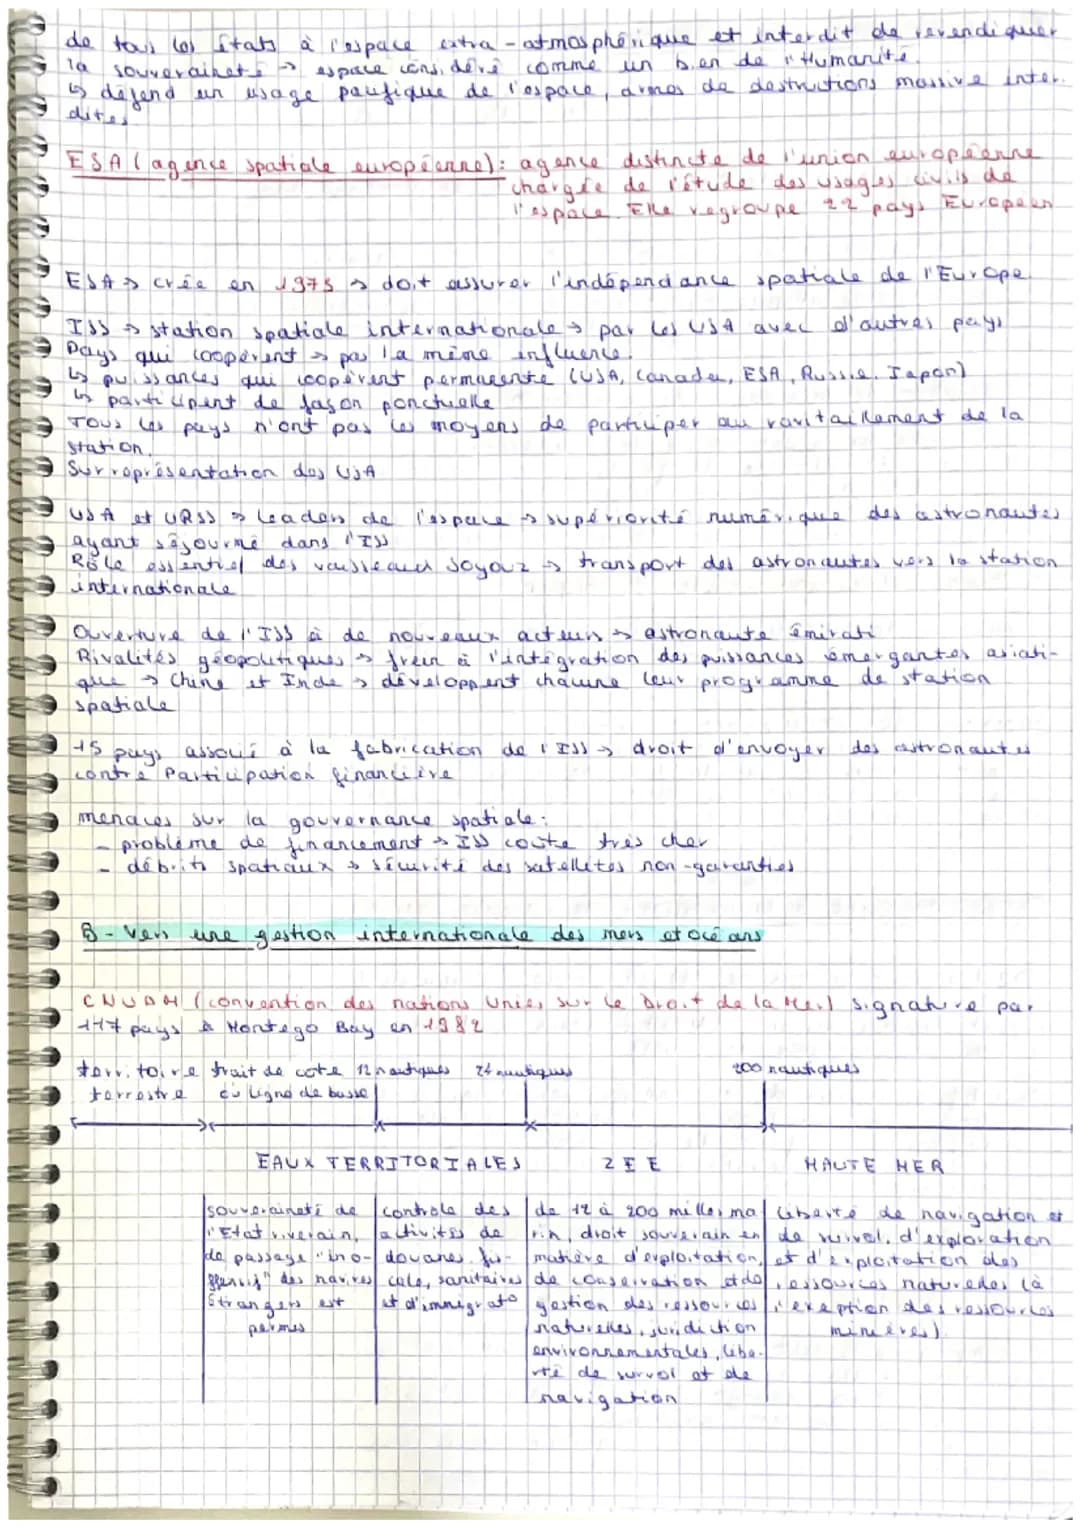 de tous les états à l'espace extra-atmosphérique et interdit de revendiquer
la souveraineté → espace considéré comme un bien de l'Humanité.
↳ défend un usage pacifique de l'espace, armes de destructions massive inter-
dites.
ESA (agence spatiale européenne): agence distincte de l'union européenne
chargée de l'étude des usages civils de
l'espace. Elle regroupe 22 pays Européen
ESA → crée en 1975 → doit assurer l'indépendance spatiale de l'Europe
ISS → station spatiale internationale → par les USA avec d'autres pays
Pays qui coopèrent → pas la même influence.
↳ puissances qui coopèrent permanente (USA, Canada, ESA, Russie, Japon)
↳ participent de façon ponctuelle
Tous les pays n'ont pas les moyens de participer au ravitaillement de la
station.
Surreprésentation des USA
USA et URSS → leaders de l'espace → supériorité numérique des astronautes
ayant séjourné dans l'ISS
Rôle essentiel des vaisseaux Soyaz → transport des astronautes vers la station
internationale
Ouverture de l'ISS à de nouveaux acteurs → astronaute émirati
Rivalités géopolitiques → frein à l'intégration des puissances émergantes asiati-
que → Chine et Inde → développent chacune leur programme de station
spatiale
15 pays associé à la fabrication de l'ISS → droit d'envoyer des astronautes
contre Participation financière
menaces sur la gouvernance spatiale:
- problème de financement → ISS coûte très cher
- débrits spatiaux → sécurité des satellites non-garanties
B - Vers une gestion internationale des mers et océans
CNUDM (convention des nations Unies sur le Droit de la Mer) signature par
117 pays à Montego Bay en 1982
territoire trait de cote 12 nautiques 24 nautiques 200 nautiques
terrestre ou ligne de basse
EAUX TERRITORIALES ZEE HAUTE MER
souveraineté de
l'Etat riverain,
de passage "ino-
ffensif" des navires
étrangers est
permis
controle des
activités de
douanes, fis-
cale, sanitaires
et d'immigrat°
de 12 à 200 milles ma
rin, droit souverain en
matière d'exploitation,
de conservation et de
gestion des ressources
naturelles, juridiction
environnementales, liber-
té de survol et de
navigation
liberté de navigation et
de survol, d'exploration
et d'exploitation des
ressources naturelles (à
l'exeption des ressources
minières)